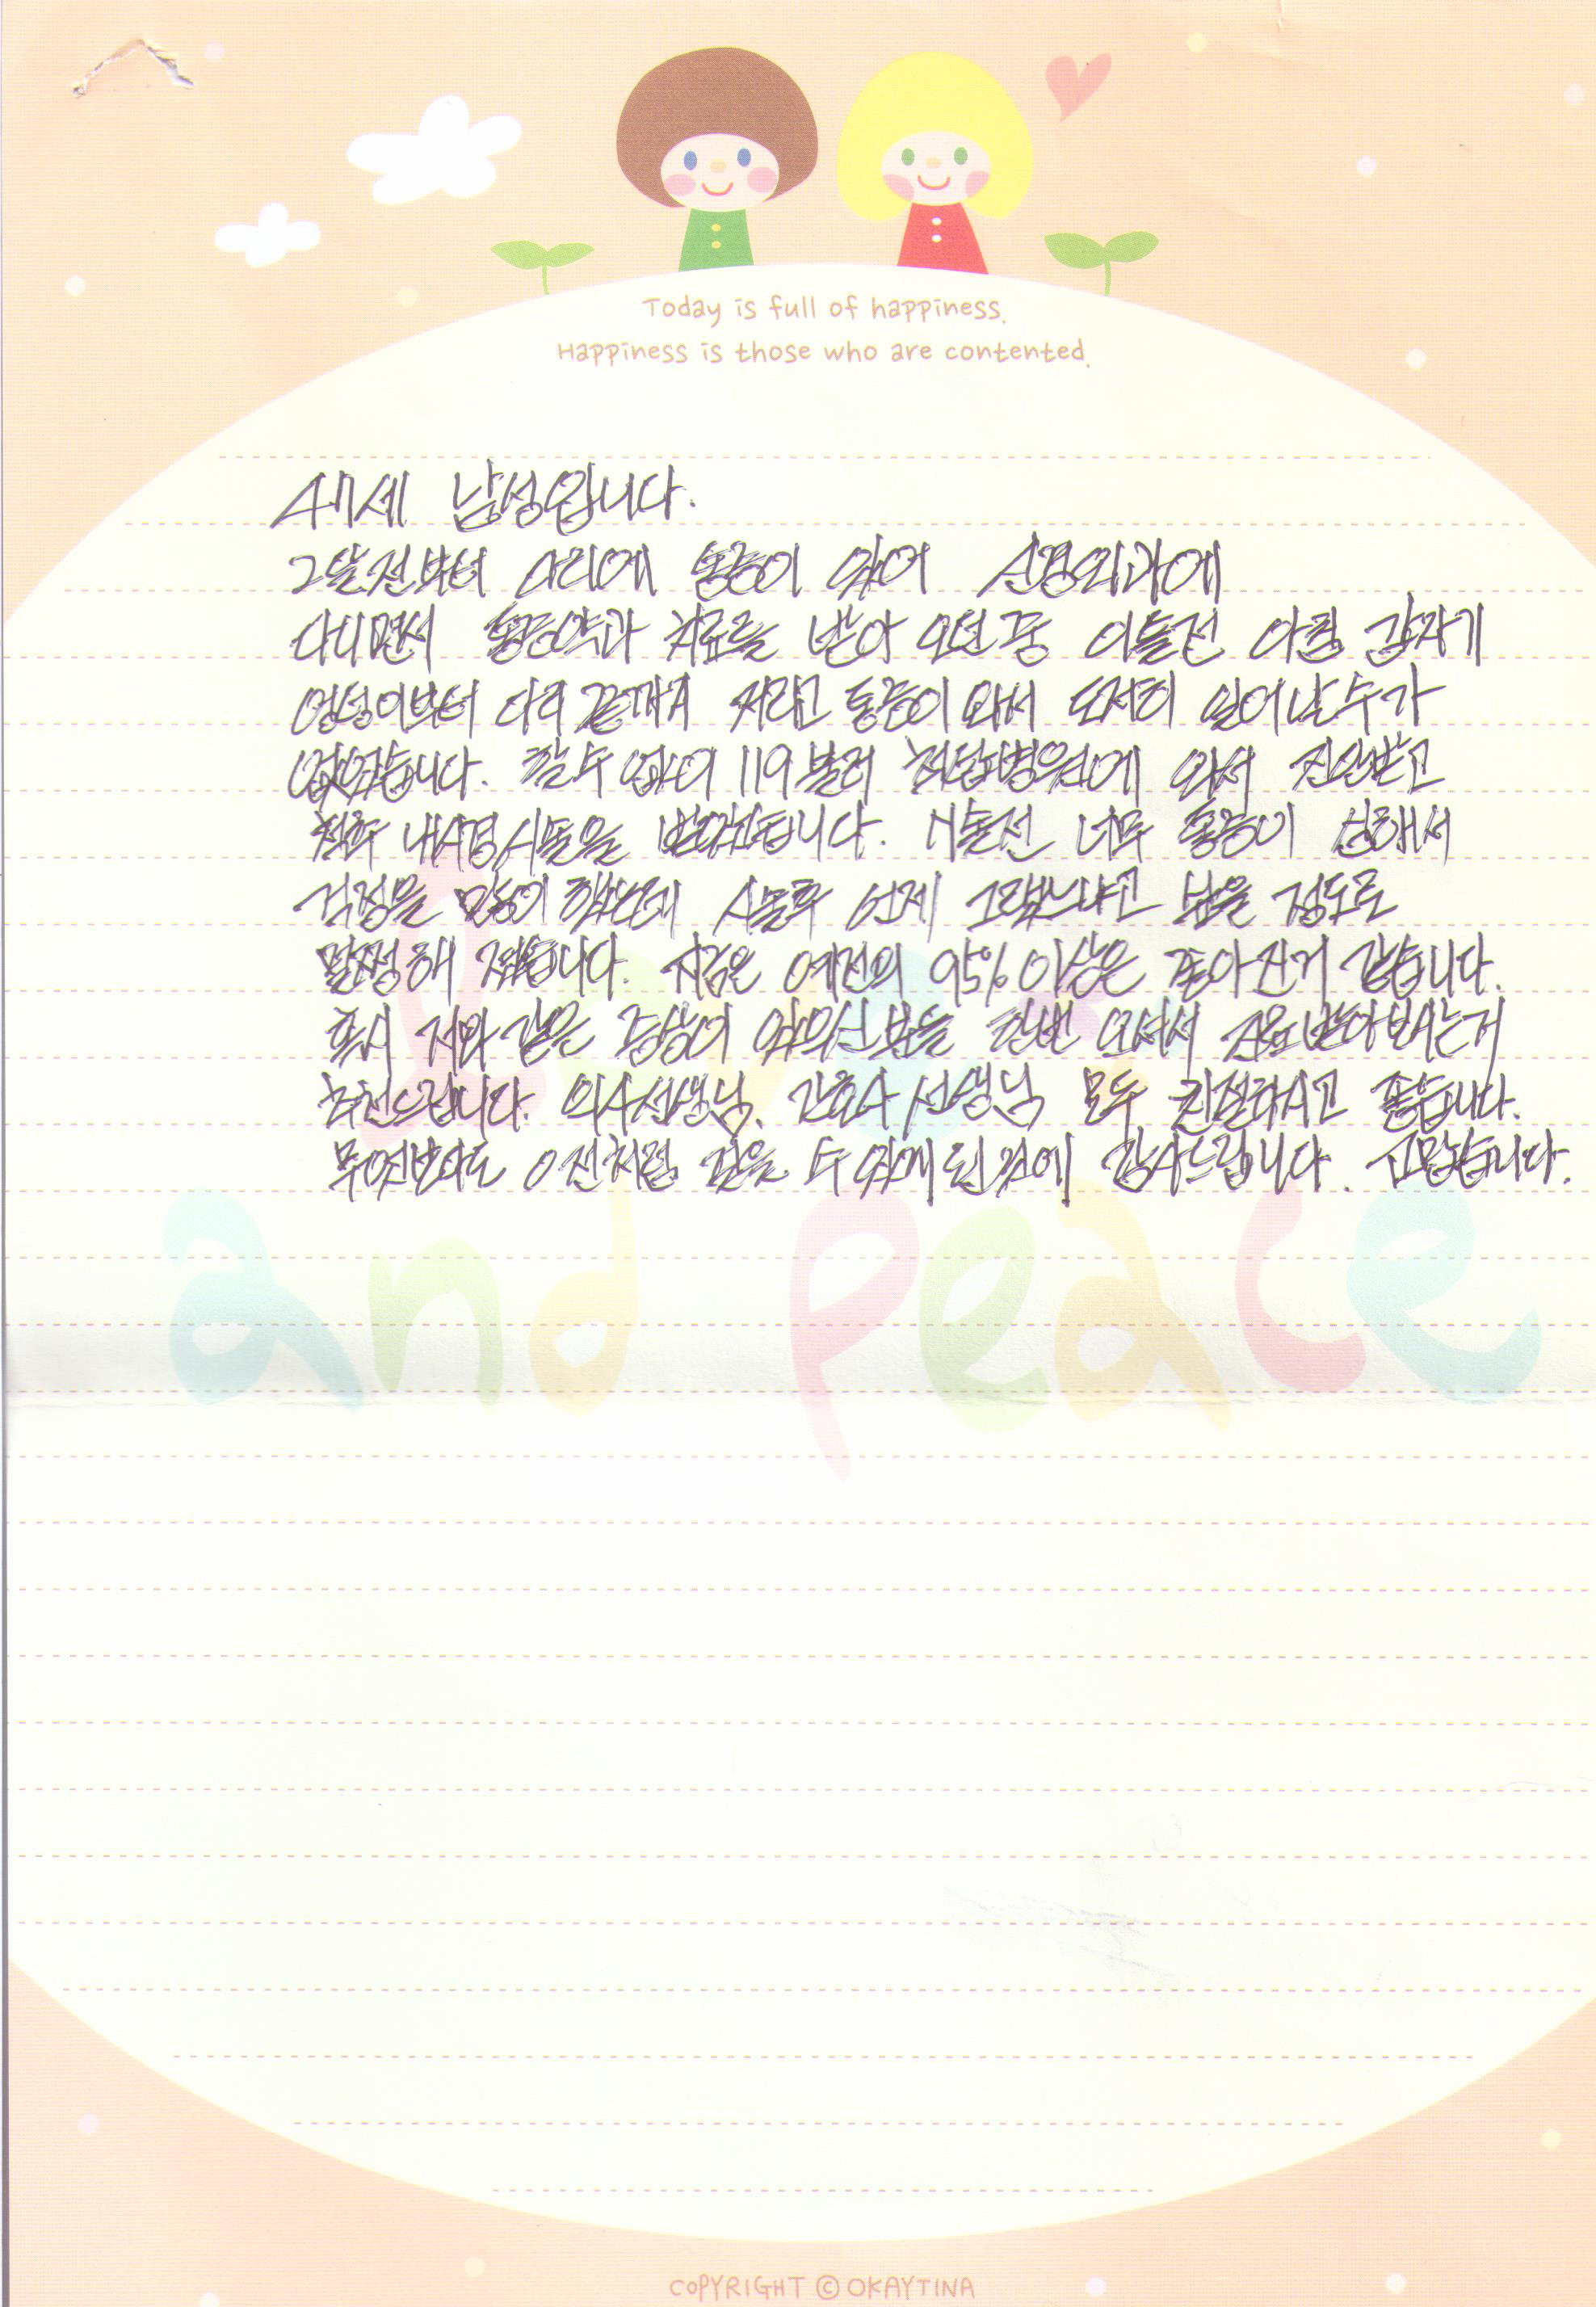 Today is full of happiness.
Happiness is those who are contented.
47세 남성입니다.
2달전부터 다리에 통증이 있어 신경외과에
다니면서 통증약과 치료를 받아 오던 중 이틀전 아침 갑자기
엉덩이부터 다리 끝까지 저리고 통증이 와서 도저히 일어날 수가
없었습니다. 할수 없이 119 불러 병원에 와서 진단받고
척추 내시경 시술을 받았습니다. 이틀전 너무 통증이 심해서
걱정을 많이 했는데 시술후 언제 그랬느냐고 싶을 정도로
말짱해 졌습니다. 지금은 예전의 95% 이상은 좋아진거 같습니다.
혹시 저와 같은 증상이 있으신 분들 한번 오셔서 치료받아보시는거
추천드립니다. 의사선생님, 간호사 선생님 모두 친절하시고 좋습니다.
무엇보다도 이전처럼 걸을 수 있게 된 것에 감사드립니다. 고맙습니다.
Love
and peace
COPYRIGHT © OKAYTINA